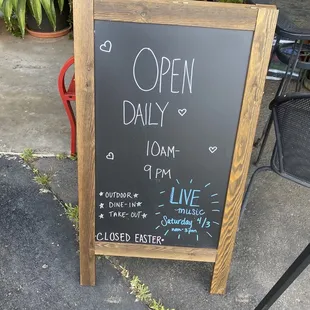 OPEN
DAILY
10AM-
9PM
★ OUTDOOR ★
★ DINE-IN ★
★ TAKE-OUT ★
LIVE
music
Saturday 4/3
CLOSED EASTER